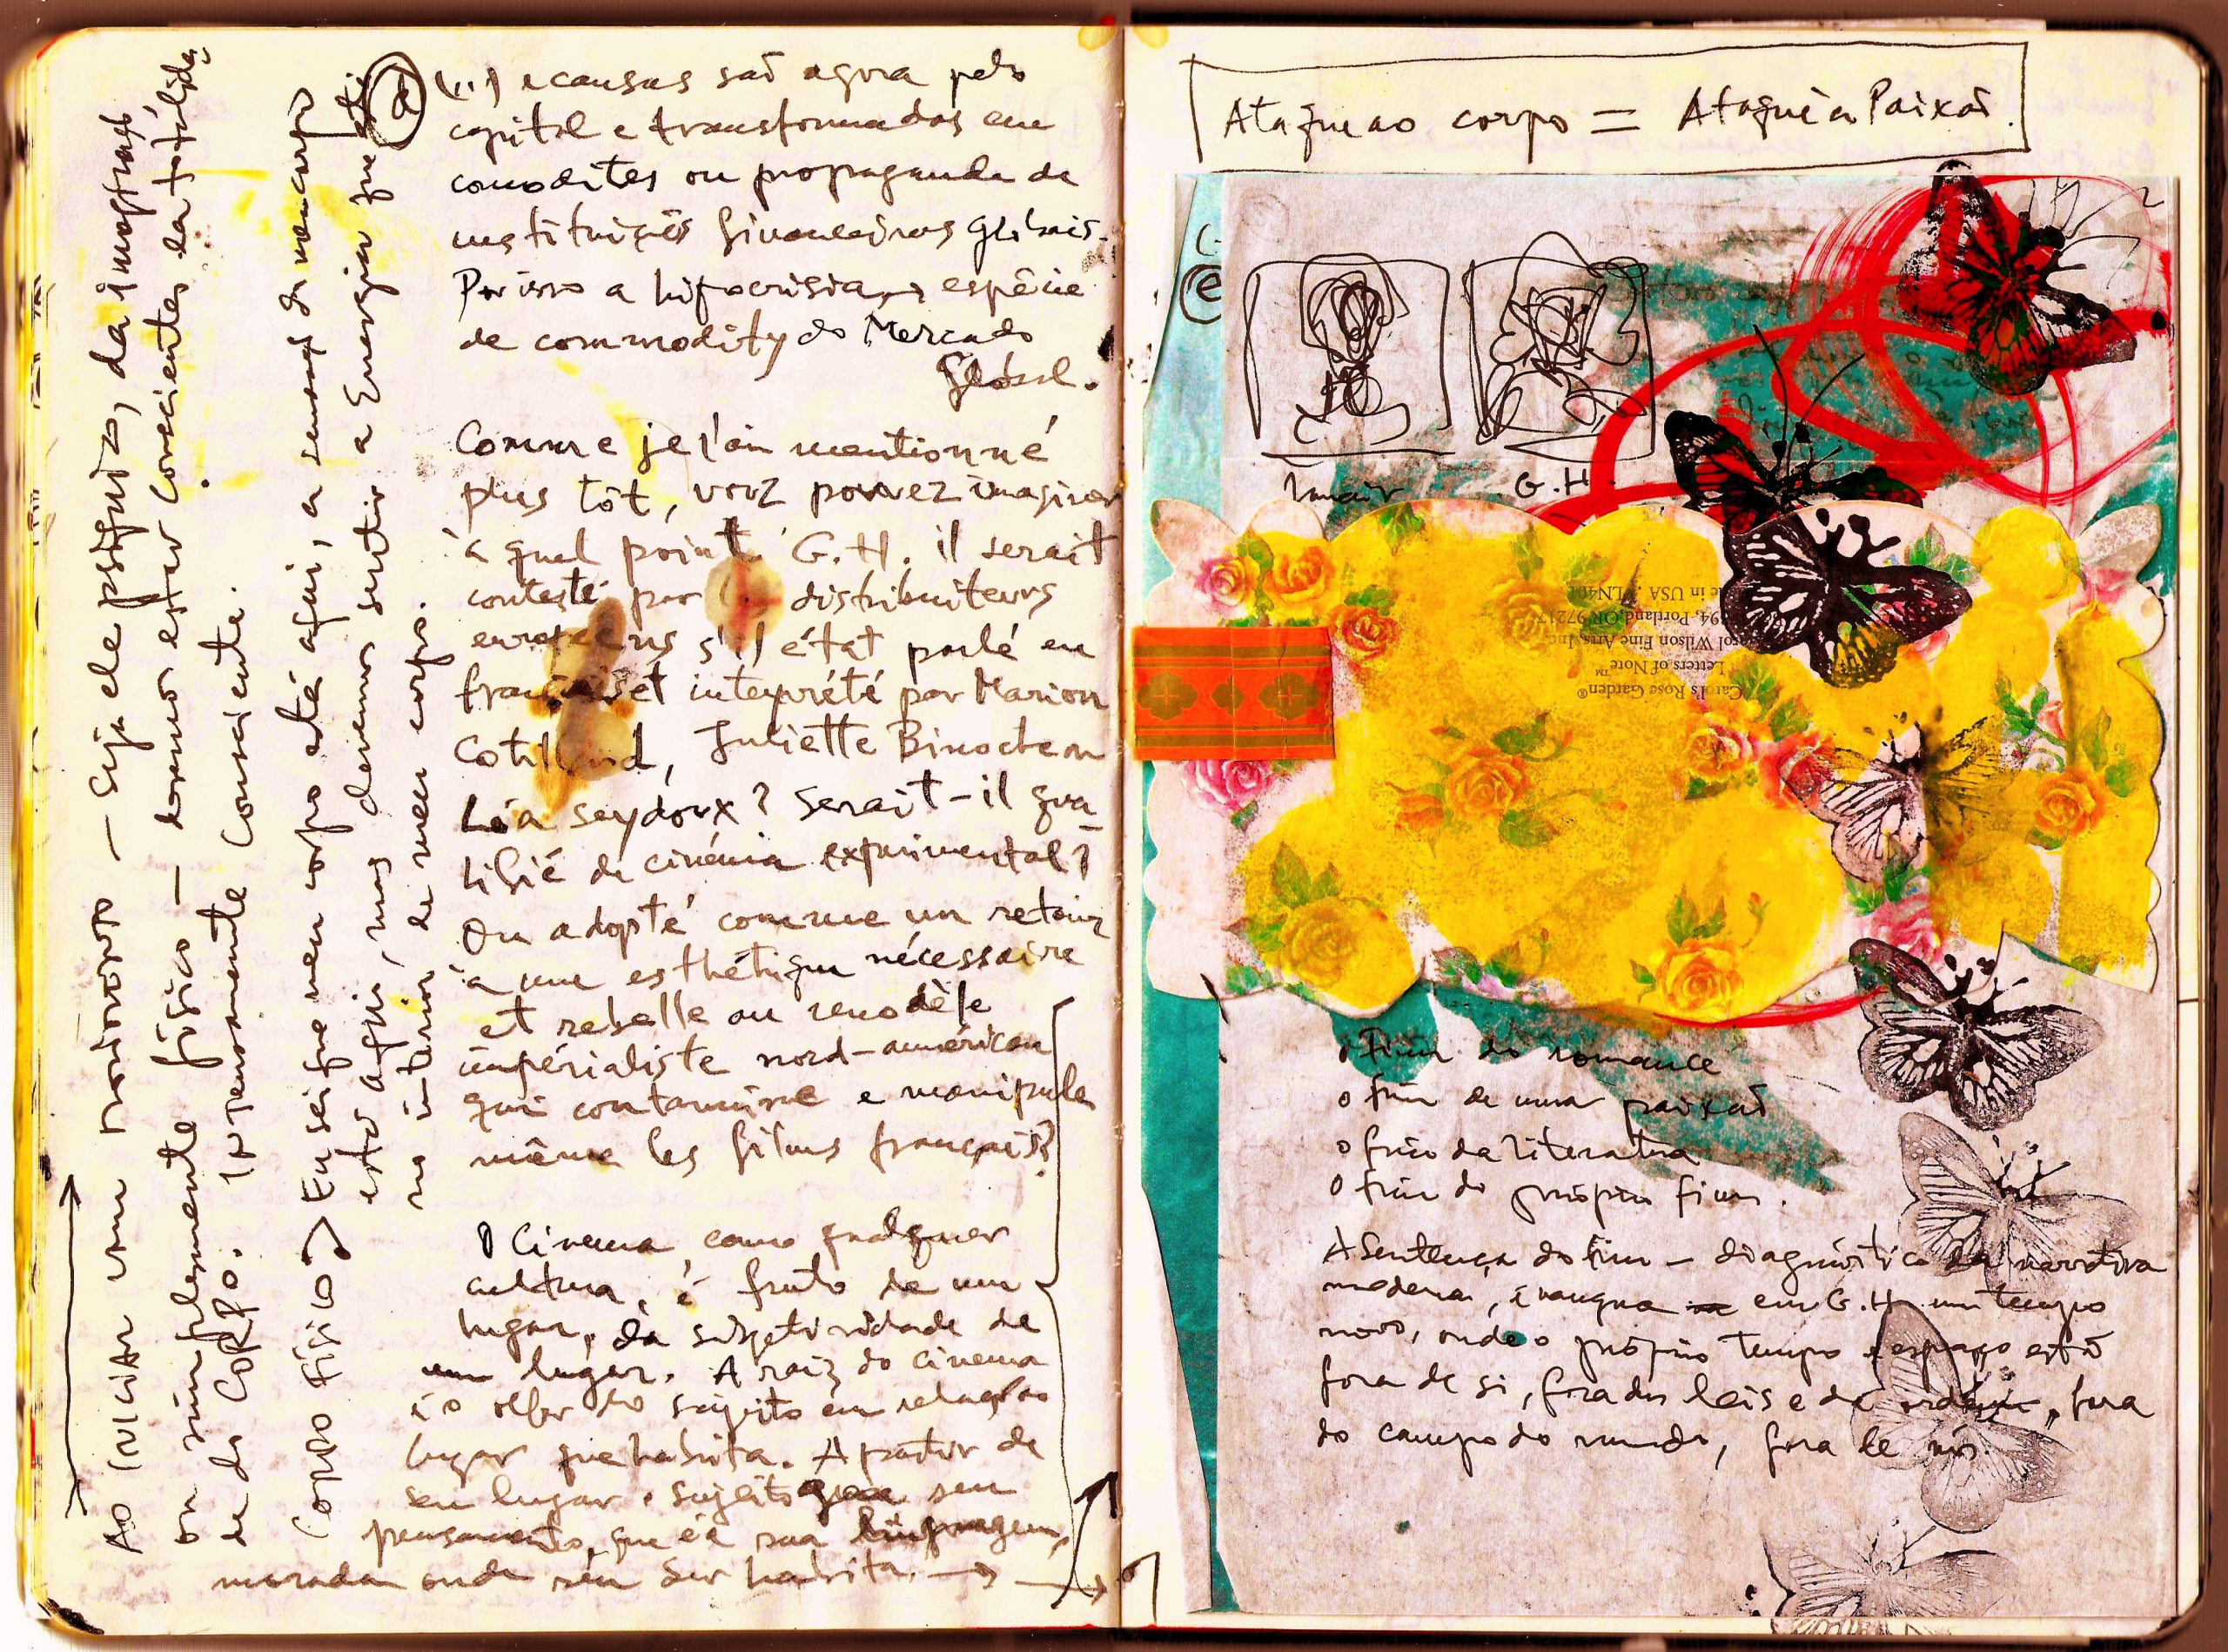 (...) e causas são agora pelo
capital e transformadas em
comodites ou propaganda de
instituições financeiras globais.
Por isso a hipocrisia → espécie
de commodity do Mercado
Global.
Comme je l'ai mentionné
plus tôt, vouz pouvez imaginer
à quel point G.H. il serait
contesté par distribuiteurs
s'il était parlé en
et interprété par Marion
Cotillard, Juliette Binoche ou
Léa Seydoux? Serait-il qua-
lifié de cinéma experimental?
Ou adopté comme un retour
à une esthétique nécessaire
et rebelle au modèle
impérialiste nord-américan
qui contamine e manipule
même les films français?
O Cinema, como qualquer
cultura, é fruto de um
lugar, da subjetividade de
um lugar. A raiz do cinema
é o olhar do sujeito em relação ao
lugar que habita. A partir de
seu lugar o sujeito seu
pensamento, que é a sua linguagem,
morada onde seu Ser habita. →
Ao iniciar um processo — seja ele psíquico, da imaginação
ou simplesmente físico — devemos estar conscientes da totalida-
de do CORPO. Intensamente consciente.
Corpo físico → Eu sei que meu corpo está aqui, a sensação do meu corpo
está aqui, mas devemos sentir a Energia que está
no interior de meu corpo.
d
Ataque ao corpo = Ataque à Paixão.
e
Janair G.H.
Carol's Rose Garden®
Letters of Note™
Carol Wilson Fine Arts, Inc.
Portland, OR 97217
Made in USA LN401
o Fim do romance
o fim de uma paixão
o fim da literatura
o fim do próprio fim.
A Sentença do fim – diagnóstico da narrativa
moderna, é inaugura em G.H. um tempo
novo, onde o próprio tempo e espaço está
fora de si, fora das leis e da ordem, fora
do campo do mundo, fora de nós.